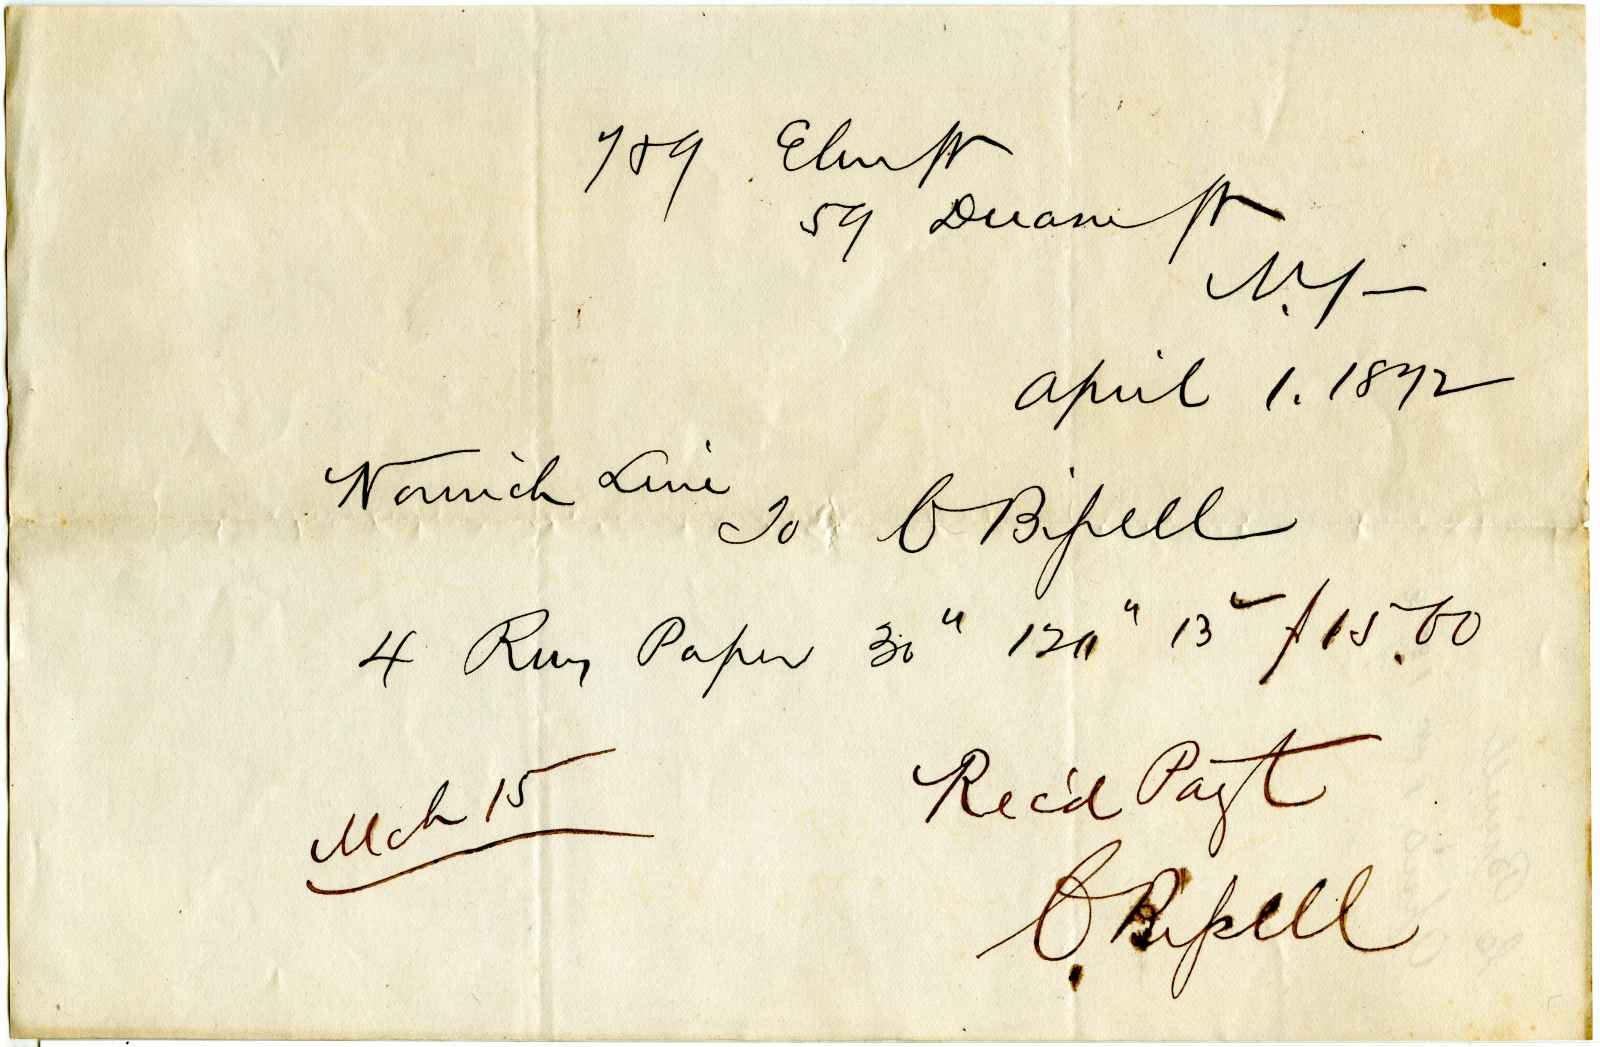 7 & 9 Elm St
59 Duane St
N.Y—
April 1. 1872
Norwich Line
To C Bissell
4 Rms Paper 30" 120" 15.00
Mch 15
Rec'd Payt
C. Bissell